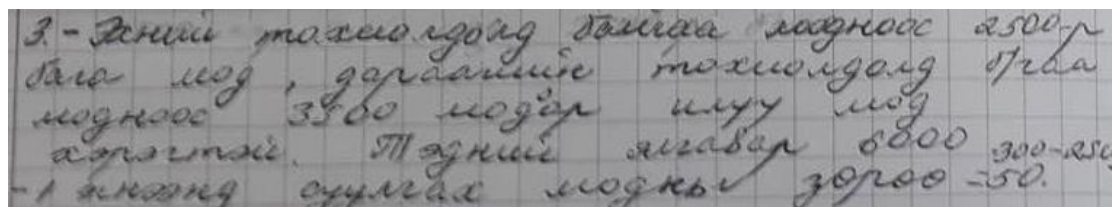 3.- Эхний тохиолдолд байгаа модноос 2500-р
бага мод, дараагийн тохиолдолд б/гаа
модноос 3500 модор илүү мод
хэрэгтэй. Тэдний ялгавар 6000 300-250
- 1 эгнээнд суулгах модны зөрөө =50.